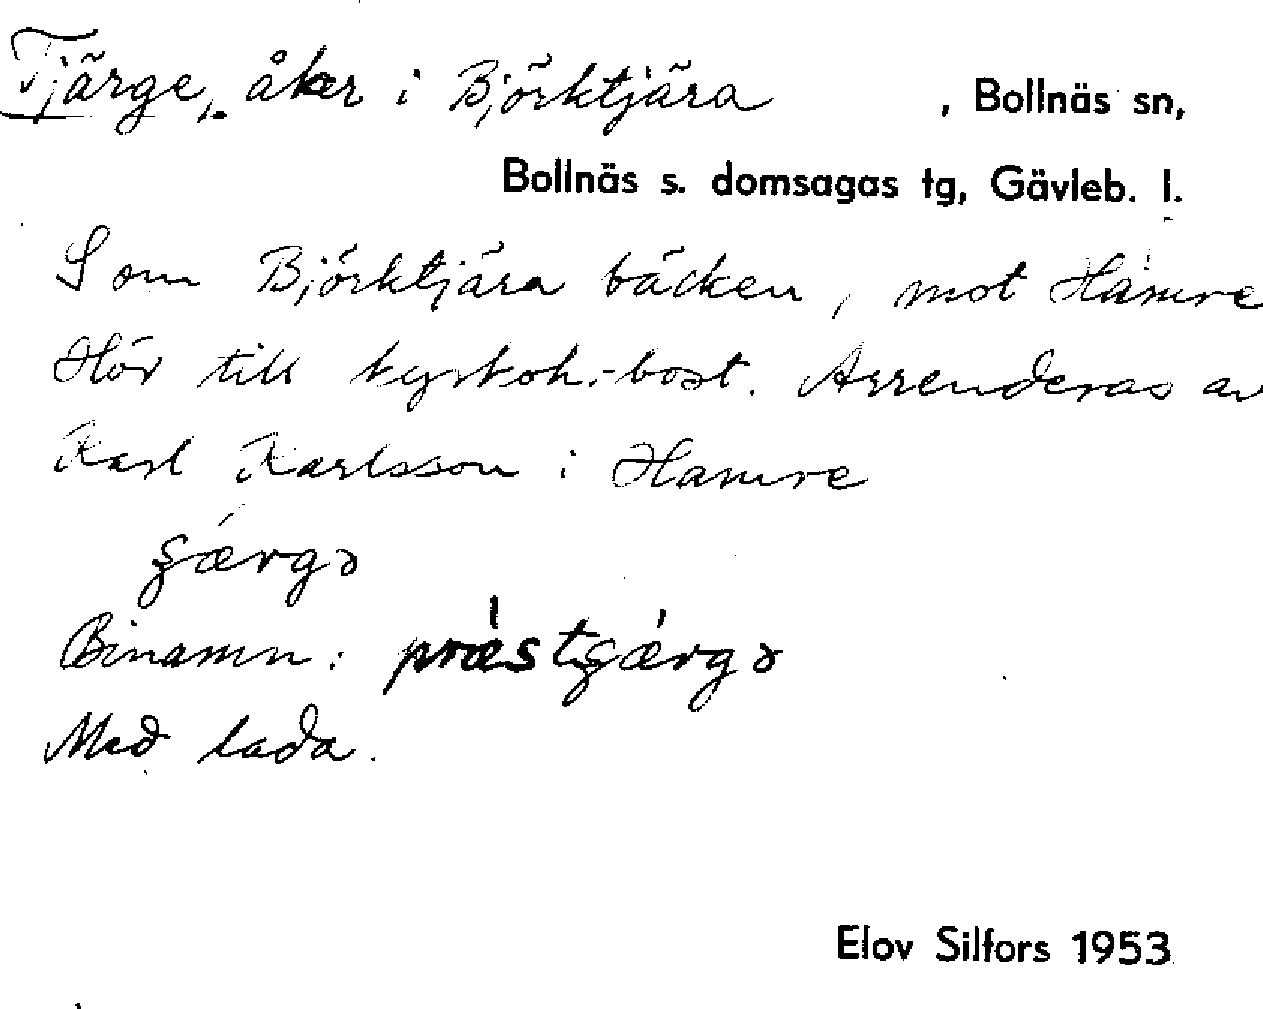 Tjärge, åker i Björktjära, Bollnäs sn,
Bollnäs s. domsagas tg, Gävleb. l.
S om Björktjära bäcken, mot Hamre
Hör till kyrkoh.-bost. Arrenderas av
Karl Karlsson i Hamre
Binamn:
Med lada.
Elov Silfors 1953